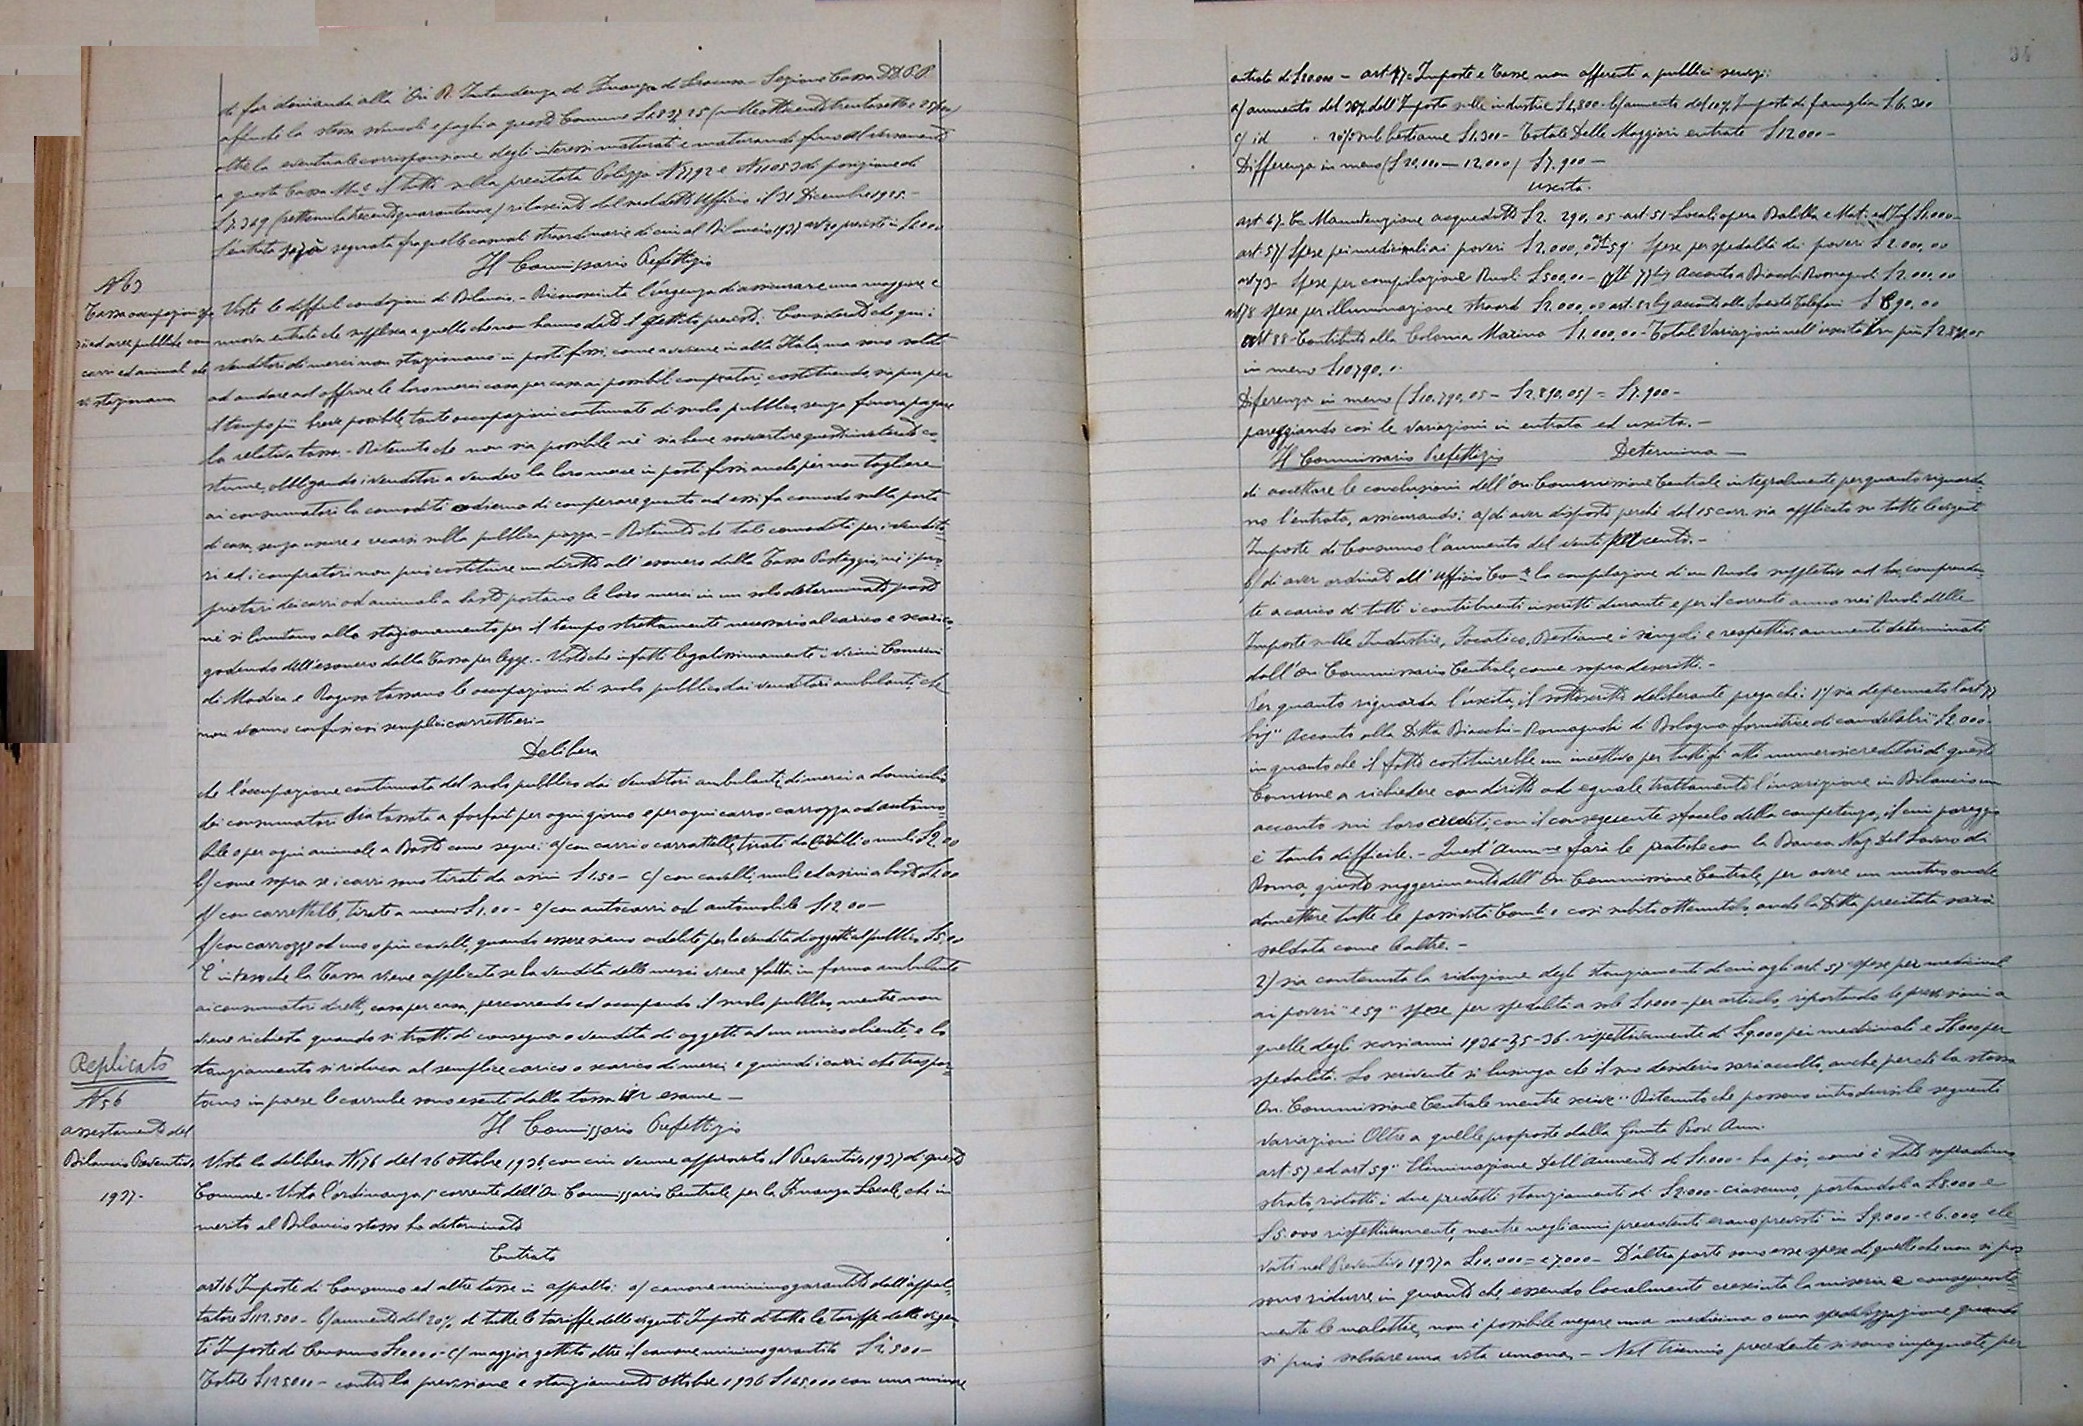 di far domanda alla On. R. Intendenza di Finanza di Siracusa - Sezione Cassa DD. P.P.
affinché la stessa svincoli e paghi a questo Comune
oltre la eventuale corresponsione degli interessi maturati e maturandi fino al versamento
a questa Cassa il tutto sulla precitata Polizza N 7792 e N 11053 di posizione di
£ 7.349 (settemilatrecentoquarantanove) rilasciata dal suddetto Ufficio il 31 Dicembre 1925.-
L'entrata sarà segnata fra quelle casuali straordinarie di cui al Bilancio 1937 art 20 previsti in £ 6000
Il Commissario Prefettizio
N 63
Tassa occupazioni
aree pubbliche con
carri ed animali che
vi stazionano
Viste le difficili condizioni di Bilancio.- Riconosciuta l'urgenza di assicurare una maggiore e
nuova entrata che sopperisca a quelle che non hanno dato il gettito previsto. Considerato che qui i
venditori di merci non stazionano in posti fissi, come avviene in alta Italia, ma sono soliti
ad andare ad offrire le loro merci casa per casa ai possibili compratori costituendo, sia pur per
il tempo più breve possibile, tante occupazioni continuate di suolo pubblico, senza finora pagare
la relativa tassa.- Ritenuto che non sia possibile né sia bene sovvertire questo inveterato co-
stume, obbligando i venditori a vendere la loro merce in posti fissi anche per non togliere
ai consumatori la comodità odierna di comperare quanto ad essi fa comodo sulla porta
di casa, senza uscire e recarsi sulla pubblica piazza.- Ritenuto che tale comodità per i vendito-
ri ed i compratori non può costituire un diritto all'esonero dalla Tassa Posteggio, né i pro-
prietari dei carri od animali a basto portano le loro merci in un solo determinato posto
né si limitano allo stazionamento per il tempo strettamente necessario al carico e scarico,
godendo dell'esonero dalla Tassa per legge.- Visto che infatti legalissimamente i vicini Comuni
di Modica e Ragusa tassano le occupazioni di suolo pubblico dai venditori ambulanti che
non vanno confusi coi semplici carrettieri.-
Delibera
che l'occupazione continuata del suolo pubblico dai venditori ambulanti di merci a domicilio
dei consumatori sia tassata a forfait per ogni giorno e per ogni carro-carrozza od automo-
bile o per ogni animale a Basto come segue: a/ con carri o carrettelle, tirati da cavalli o muli £ 2,00
b/ come sopra se i carri sono tirati da asini £ 1,50 - c/ con cavalli, muli ed asini a basto £ 1,00
d/ con carrettelle, tirate a mano £ 1,00 - e/ con autocarri od automobile £ 12 00 -
f/ con carrozze od uno o più cavalli, quando essere siano adibite per la vendita di oggetti al pubblico £ 5,00
È inteso che la Tassa viene applicata se la vendita delle merci viene fatta in forma ambulante
ai consumatori diretti, casa per casa, percorrendo ed occupando il suolo pubblico, mentre non
viene richiesta quando si tratti di consegna o vendita di oggetti ad un unico cliente, e lo
stanziamento si riduca al semplice carico o scarico di merci e quindi i carri che traspor-
tano in paese le carrube sono esenti dalla tassa in esame -
Replicato
N 56
assestamento del
Bilancio Preventivo
1937.-
Il Commissario Prefettizio
Vista la delibera N. 76 del 26 ottobre 1936 con cui venne approvato il Preventivo 1937 di questo
Comune - Vista l'ordinanza corrente dell'On. Commissario Centrale per la Finanza Locale, che in
merito al Bilancio stesso ha determinato
Entrata
art 16 Imposte di Consumo ed altre tasse in appalto: a/ canone minimo garantito dall'appal-
tatore £ 112.500 - b/ aumento del 20% di tutte le tariffe delle vigenti Imposte di tutte le tariffe delle vigen
ti Imposte di Consumo - c/ maggior gettito oltre il canone minimo garantito £ 2.500 -
Totale £ 125000 - contro la previsione e stanziamento ottobre 1936 £ 145.000 con una minore
94
entrata di £ 20.000 - art 17= Imposte e Tasse non afferenti a pubblici servizi:
a/ aumento del 20% dell'Imposta sulle industrie £ 4,800 - b/ aumento del 10% Imposta di famiglia £ 6.300
c/ id " 20% sul bestiame £ 1,300 - Totale Delle Maggiori entrate £ 12000 -
Differenza in meno (£ 20,000 - 12,000) £ 7.900 -
uscita.
art. 47. Manutenzione acquedotto £ 2.290,05 - art. 51 Locali opera Balilla e Mat. ed Inf. £ 1.000 -
art. 57/ Spese pei medicinali ai poveri £ 2.000,00 art 59: Spese per spedalità dei poveri £ 2.000,00
art 73 - Spese per compilazione Ruoli £ 500,00 - art 77 bis Acconto a Biacchi Romagnoli £ 2.000,00
art 78 Spese per illuminazione straord £ 2.000,00 art. 82 bis acconto alla Società Telefoni £ 890,00
art 88 - Contributo alla Colonia Marina £ 1.000,00 - Totale Variazioni nell'uscita in più £ 2.890,05
in meno £ 10790,..
Differenza in meno (£ 10.790,05 - £ 2.890,05) = £ 7.900 -
pareggiando così le variazioni in entrata ed uscita.-
Il Commissario Prefettizio Determina -
di accettare le conclusioni dell'On. Commissione Centrale integralmente per quanto riguarda-
no l'entrata, assicurando: a/ di aver disposto perché dal 15 corr. sia applicato su tutte le vigenti
Imposte di Consumo l'aumento del venti per cento.-
b/ di aver ordinato all'Ufficio la compilazione di un Ruolo suppletivo ad hoc, comprenden-
te a carico di tutti i contribuenti inscritti durante e per il corrente anno nei Ruoli delle
Imposte sulle Industrie, Focatico, Bestiame i singoli e rispettivi aumenti determinati
dall'On. Commissario Centrale, come sopra descritti.-
Per quanto riguarda l'uscita, il sottoscritto deliberante prega che: 1°/ sia depennato l'art 77
bis "Acconto alla Ditta Biacchi-Romagnoli di Bologna fornitrice di candelabri" £ 2.000-
in quanto che il fatto costituirebbe un incentivo per tutti gli altri numerosi creditori di questo
Comune a richiedere con diritto ad eguale trattamento l'inscrizione in Bilancio un
acconto sui loro crediti, con il conseguente sfacelo della competenza, il cui pareggio
è tanto difficile.- Quest'Amm.ne farà le pratiche con la Banca Naz. del Lavoro di
Roma, giusto suggerimento dell'On. Commissione Centrale, per avere un mutuo onde
dimettere tutte le passività e così subito ottenutolo, anche la Ditta precitata sarà
soldata come l'altre.-
2) sia contenuta la riduzione degli stanziamenti di cui agli art. 57 "Spese per medicinali
ai poveri" e 59 "Spese per spedalità a sole £ 1000 - per articolo, riportando le previsioni a
quelle degli scorsi anni 1934-35-36 - rispettivamente di £ 9.000 pei medicinali e £ 6000 per
spedalità. Lo scrivente si lusinga che il suo desiderio sarà accolto, anche perché la stessa
On. Commissione Centrale mentre scrive "Ritenuto che possono introdursi le seguenti
variazioni Oltre a quelle proposte dalla Giunta Prov. Amm.
art. 57 ed art 59" Eliminazione Dell'Aumento di £ 1.000 - ha poi, come è stato sopra dimo-
strato, ridotti i due predetti stanziamenti di £ 2.000 - ciascuno, portandoli a £ 8.000 e
£ 5.000 rispettivamente, mentre negli anni precedenti erano previsti in £ 9.000 - e 6.000, ele-
vati nel Preventivo 1937 a £ 10.000 = e 7.000 - D'altra parte sono esse spese di quelle che non si pos
sono ridurre, in quanto che, essendo localmente cresciuta la miseria e conseguente-
mente le malattie, non è possibile negare una medicina o una spedalizzazione, quando
si può salvare una vita umana.- Nel triennio precedente si sono impegnate, per